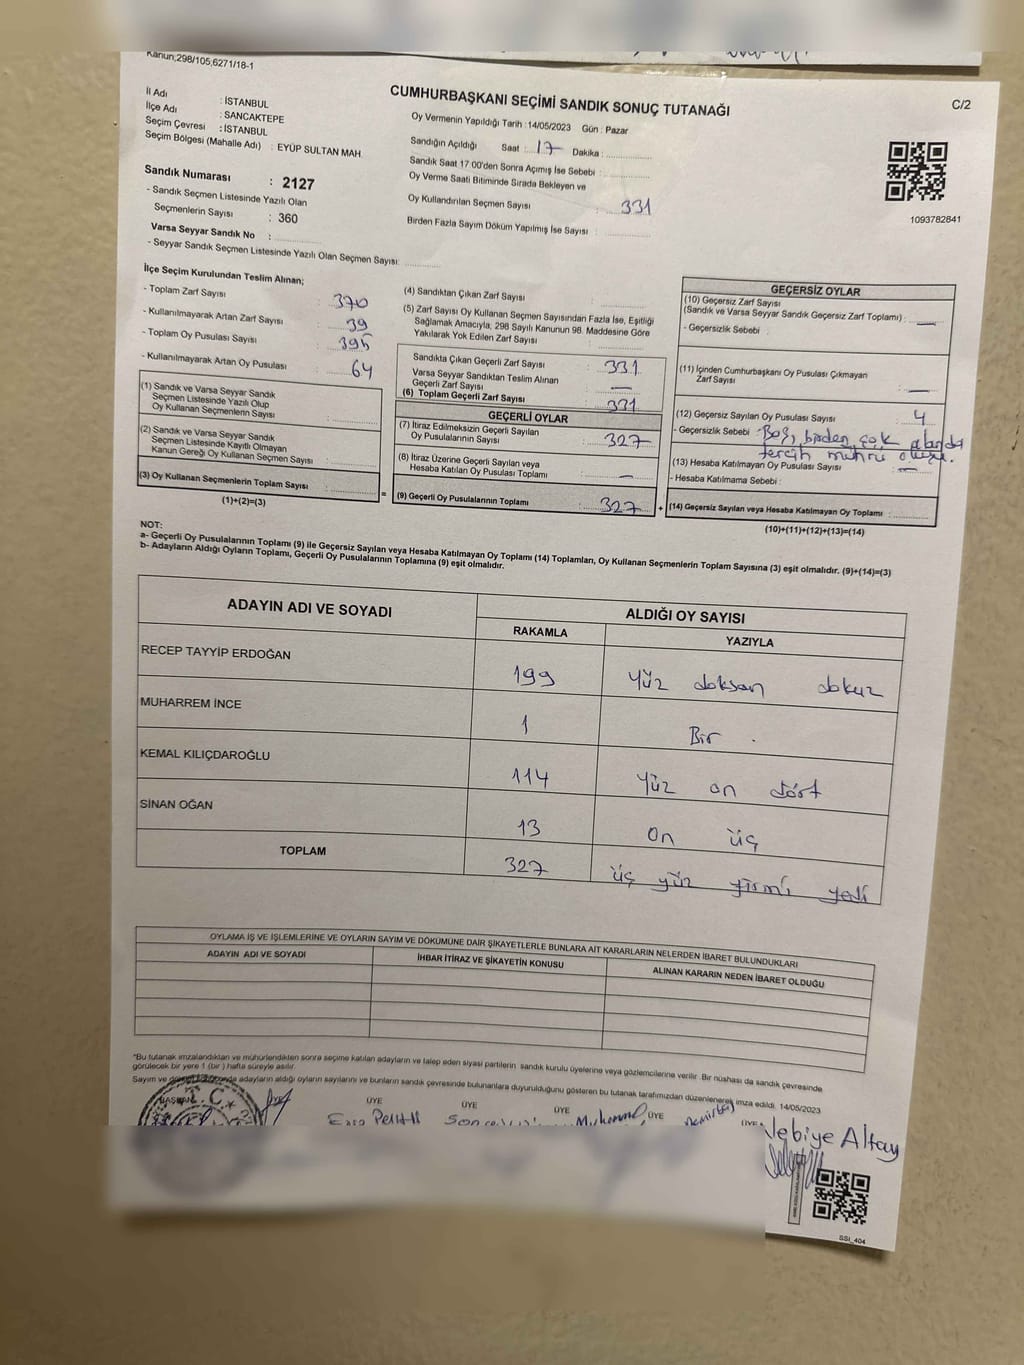 Kanun;298/105;6271/18-1
CUMHURBAŞKANI SEÇİMİ SANDIK SONUÇ TUTANAĞI
C/2
İl Adı : İSTANBUL
İlçe Adı : SANCAKTEPE
Seçim Çevresi : İSTANBUL
Seçim Bölgesi (Mahalle Adı) : EYÜP SULTAN MAH
Sandık Numarası : 2127
- Sandık Seçmen Listesinde Yazılı Olan
Seçmenlerin Sayısı : 360
Varsa Seyyar Sandık No :
- Seyyar Sandık Seçmen Listesinde Yazılı Olan Seçmen Sayısı:
Oy Vermenin Yapıldığı Tarih : 14/05/2023 Gün : Pazar
Sandığın Açıldığı Saat : 17 Dakika :
Sandık Saat 17:00'den Sonra Açımış İse Sebebi :
Oy Verme Saati Bitiminde Sırada Bekleyen ve
Oy Kullandırılan Seçmen Sayısı : 331
Birden Fazla Sayım Döküm Yapılmış İse Sayısı :
1093782841
İlçe Seçim Kurulundan Teslim Alınan;
- Toplam Zarf Sayısı : 370
- Kullanılmayarak Artan Zarf Sayısı : 39
- Toplam Oy Pusulası Sayısı : 395
- Kullanılmayarak Artan Oy Pusulası : 64
(1) Sandık ve Varsa Seyyar Sandık
Seçmen Listesinde Yazılı Olup
Oy Kullanan Seçmenlerin Sayısı :
(2) Sandık ve Varsa Seyyar Sandık
Seçmen Listesinde Kayıtlı Olmayan
Kanun Gereği Oy Kullanan Seçmen Sayısı :
(3) Oy Kullanan Seçmenlerin Toplam Sayısı :
(1)+(2)=(3)
=
(4) Sandıktan Çıkan Zarf Sayısı :
(5) Zarf Sayısı Oy Kullanan Seçmen Sayısından Fazla İse, Eşitliği
Sağlamak Amacıyla, 298 Sayılı Kanunun 98. Maddesine Göre
Yakılarak Yok Edilen Zarf Sayısı :
Sandıkta Çıkan Geçerli Zarf Sayısı : 331
Varsa Seyyar Sandıktan Teslim Alınan
Geçerli Zarf Sayısı : —
(6) Toplam Geçerli Zarf Sayısı : 331
GEÇERLİ OYLAR
(7) İtiraz Edilmeksizin Geçerli Sayılan
Oy Pusulalarının Sayısı : 327
(8) İtiraz Üzerine Geçerli Sayılan veya
Hesaba Katılan Oy Pusulası Toplamı : —
(9) Geçerli Oy Pusulalarının Toplamı : 327
+
GEÇERSİZ OYLAR
(10) Geçersiz Zarf Sayısı
(Sandık ve Varsa Seyyar Sandık Geçersiz Zarf Toplamı) : —
- Geçersizlik Sebebi :
(11) İçinden Cumhurbaşkanı Oy Pusulası Çıkmayan
Zarf Sayısı : —
(12) Geçersiz Sayılan Oy Pusulası Sayısı : 4
- Geçersizlik Sebebi : Boş, birden çok alanda
tercih mührü oluşu.
(13) Hesaba Katılmayan Oy Pusulası Sayısı : —
- Hesaba Katılmama Sebebi :
(14) Geçersiz Sayılan veya Hesaba Katılmayan Oy Toplamı :
(10)+(11)+(12)+(13)=(14)
NOT:
a- Geçerli Oy Pusulalarının Toplamı (9) ile Geçersiz Sayılan veya Hesaba Katılmayan Oy Toplamı (14) Toplamları, Oy Kullanan Seçmenlerin Toplam Sayısına (3) eşit olmalıdır. (9)+(14)=(3)
b- Adayların Aldığı Oyların Toplamı, Geçerli Oy Pusulalarının Toplamına (9) eşit olmalıdır.
ADAYIN ADI VE SOYADI
ALDIĞI OY SAYISI
RAKAMLA YAZIYLA
RECEP TAYYİP ERDOĞAN 199 Yüz doksan dokuz
MUHARREM İNCE 1 Bir .
KEMAL KILIÇDAROĞLU 114 Yüz on dört
SİNAN OĞAN 13 On üç
TOPLAM 327 üç yüz yirmi yedi
OYLAMA İŞ VE İŞLEMLERİNE VE OYLARIN SAYIM VE DÖKÜMÜNE DAİR ŞİKAYETLERLE BUNLARA AİT KARARLARIN NELERDEN İBARET BULUNDUKLARI
ADAYIN ADI VE SOYADI İHBAR İTİRAZ VE ŞİKAYETİN KONUSU ALINAN KARARIN NEDEN İBARET OLDUĞU
*Bu tutanak imzalandıktan ve mühürlendikten sonra seçime katılan adayların ve talep eden siyasi partilerin sandık kurulu üyelerine veya gözlemcilerine verilir. Bir nüshası da sandık çevresinde
görülecek bir yere 1 (bir) hafta süreyle asılır.
Sayım ve adayların aldığı oyların sayılarını ve bunların sandık çevresinde bulunanlara duyurulduğunu gösteren bu tutanak tarafımızdan düzenlenerek imza edildi. 14/05/2023
BAŞKAN ÜYE ÜYE ÜYE ÜYE ÜYE
T.C.
Muhammed
Nebiye Altay
SSİ_404